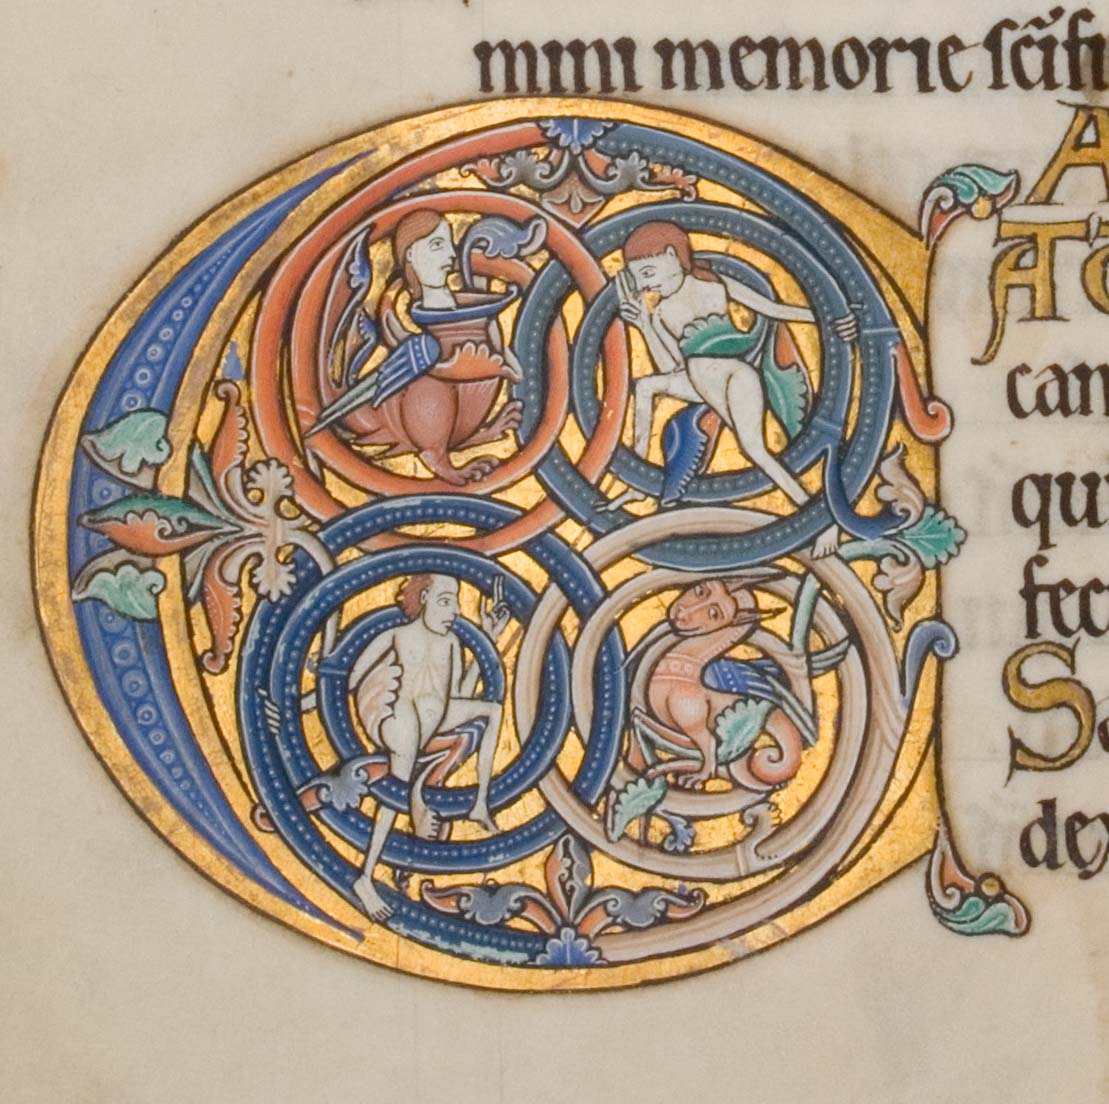 mini memorie sc̃ifi
C
A
TA
can
qu
fec
Sa
dex